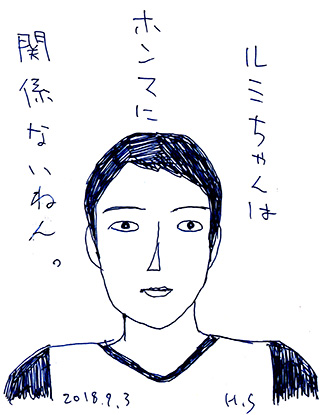 ルミちゃんは
ホンマに
関係ないねん。
2018.9.3
H.S